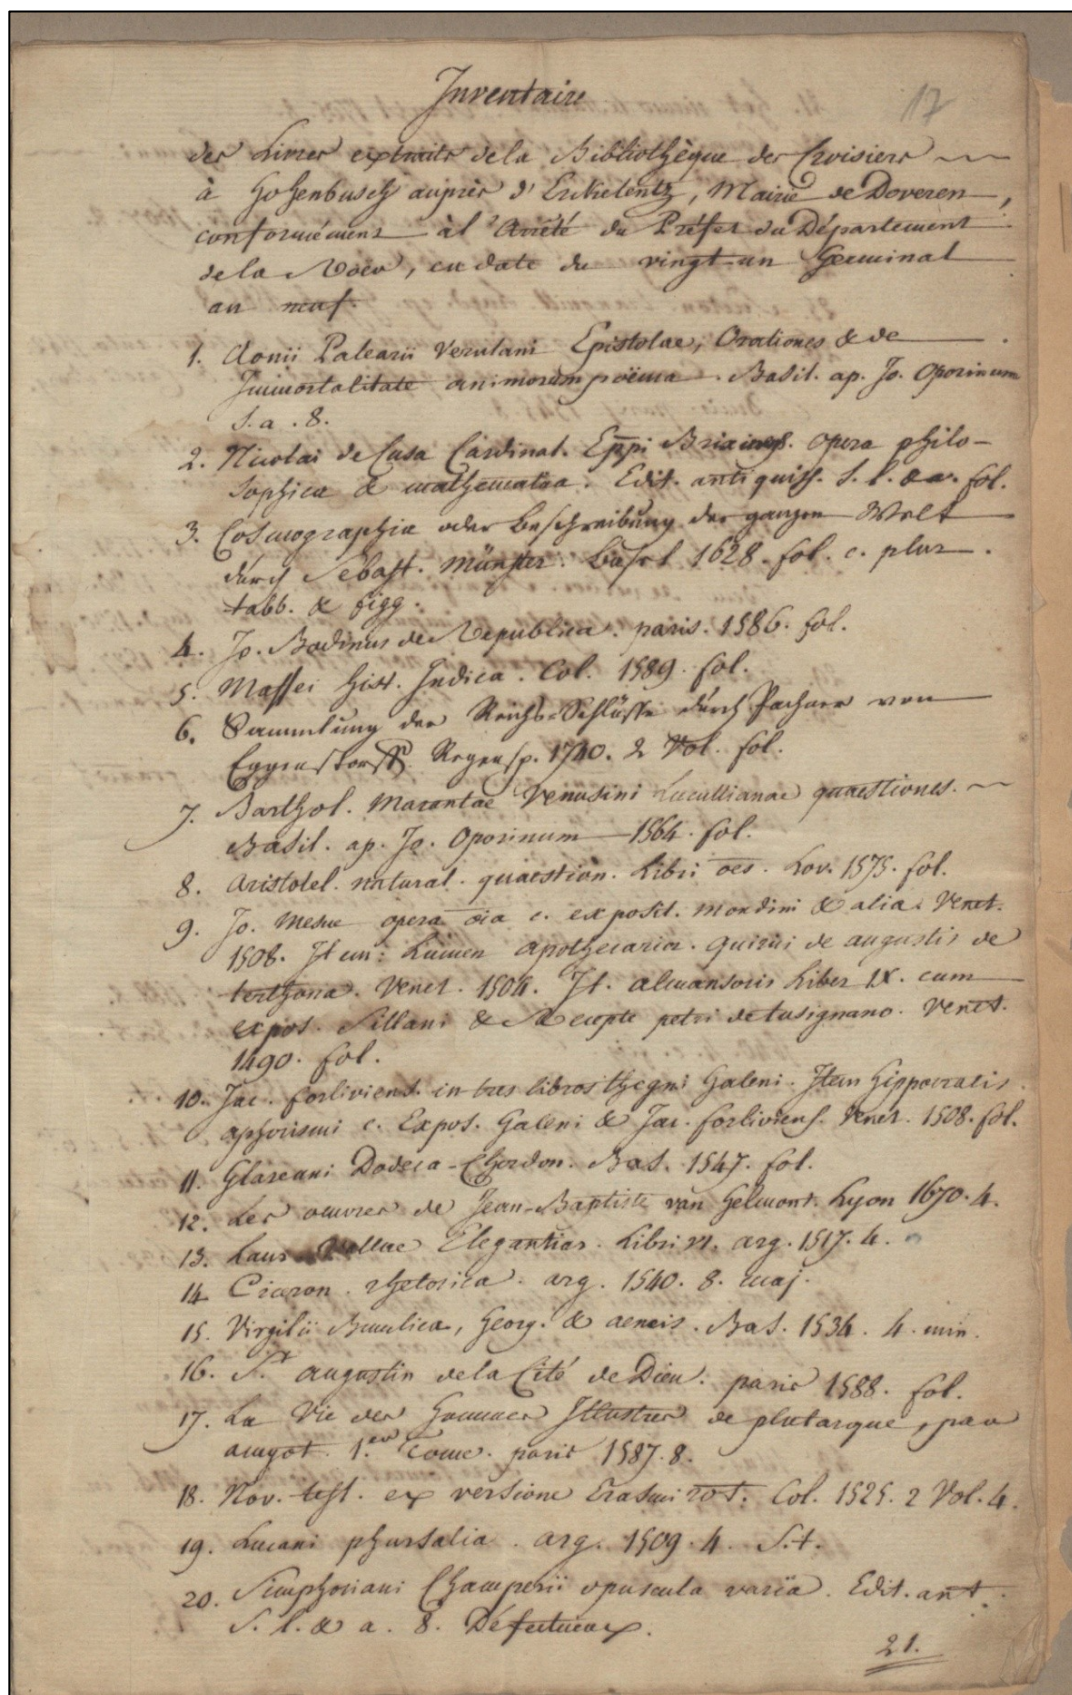 Inventaire
17
des Livres extraits de la Bibliothèque des Croisiers
à Hohenbusch auprès d'Erkelentz, Mairie de Doveren,
conformément à l'Arrêté du Préfet du Département
de la Roer, en date du vingt-un Germinal
an neuf.
1. Aonii Palearii Verulani Epistolae, Orationes & de
Immortalitate animorum poëma. Basil. ap. Jo. Oporinum
s. a. 8.
2. Nicolai de Cusa Cardinal. Eppi Brixinens. opera philo-
sophica & mathematica. Edit. antiquiss. s. l. & a. fol.
3. Cosmographia oder Beschreibung der ganzen Welt
durch Sebast. Münster. Basel 1628. fol. c. plur.
tabb. & figg.
4. Jo. Bodinus de Republica. paris. 1586. fol.
5. Maffei Hist. Indica. Col. 1589. fol.
6. Sammlung der Reichs-Schlüsse durch Pachner von
Eggenstorff. Regensp. 1740. 2 Vol. fol.
7. Barthol. Marantae Venusini Lucullianae quaestiones.
Basil. ap. Jo. Oporinum 1564. fol.
8. Aristotel. natural. quaestion. Libri oēs. Lov. 1575. fol.
9. Jo. Mesue opera oīa c. exposit. mondini & alia. Venet.
1508. Item: Lumen apothecarior. Quirici de augustis de
terthona. Venet. 1504. It. almansoris Liber IX. cum
expos. Sillani & Recepte petri de tusignano. Venet.
1490. fol.
10. Jac. forliviens. in tres libros thegni Galeni. Item Hippocratis
aphorismi c. Expos. Galeni & Jac. forliviens. Venet. 1508. fol.
11. Glareani Dodeca-Chordon. Bas. 1547. fol.
12. Les oeuvres de Jean-Baptiste van Helmont. Lyon 1670. 4.
13. Laur. Vallae Elegantiar. Libri VI. arg. 1517. 4.
14 Ciceron. rhetorica. arg. 1540. 8. maj.
15. Virgilii Bucolica, Georg. & aeneis. Bas. 1534. 4. min.
16. St augustin de la Cité de Dieu. paris 1588. fol.
17. La Vie des hommes Illustres de plutarque, par
amyot. 1.er Tome. paris 1587. 8.
18. Nov. test. ex versione Erasmi rot. Col. 1525. 2 Vol. 4.
19. Lucani pharsalia. arg. 1509. 4. S.t.
20. Simphoriani Champerii opuscula varia. Edit. ant.
s. l. & a. 8. Défectueux.
21.